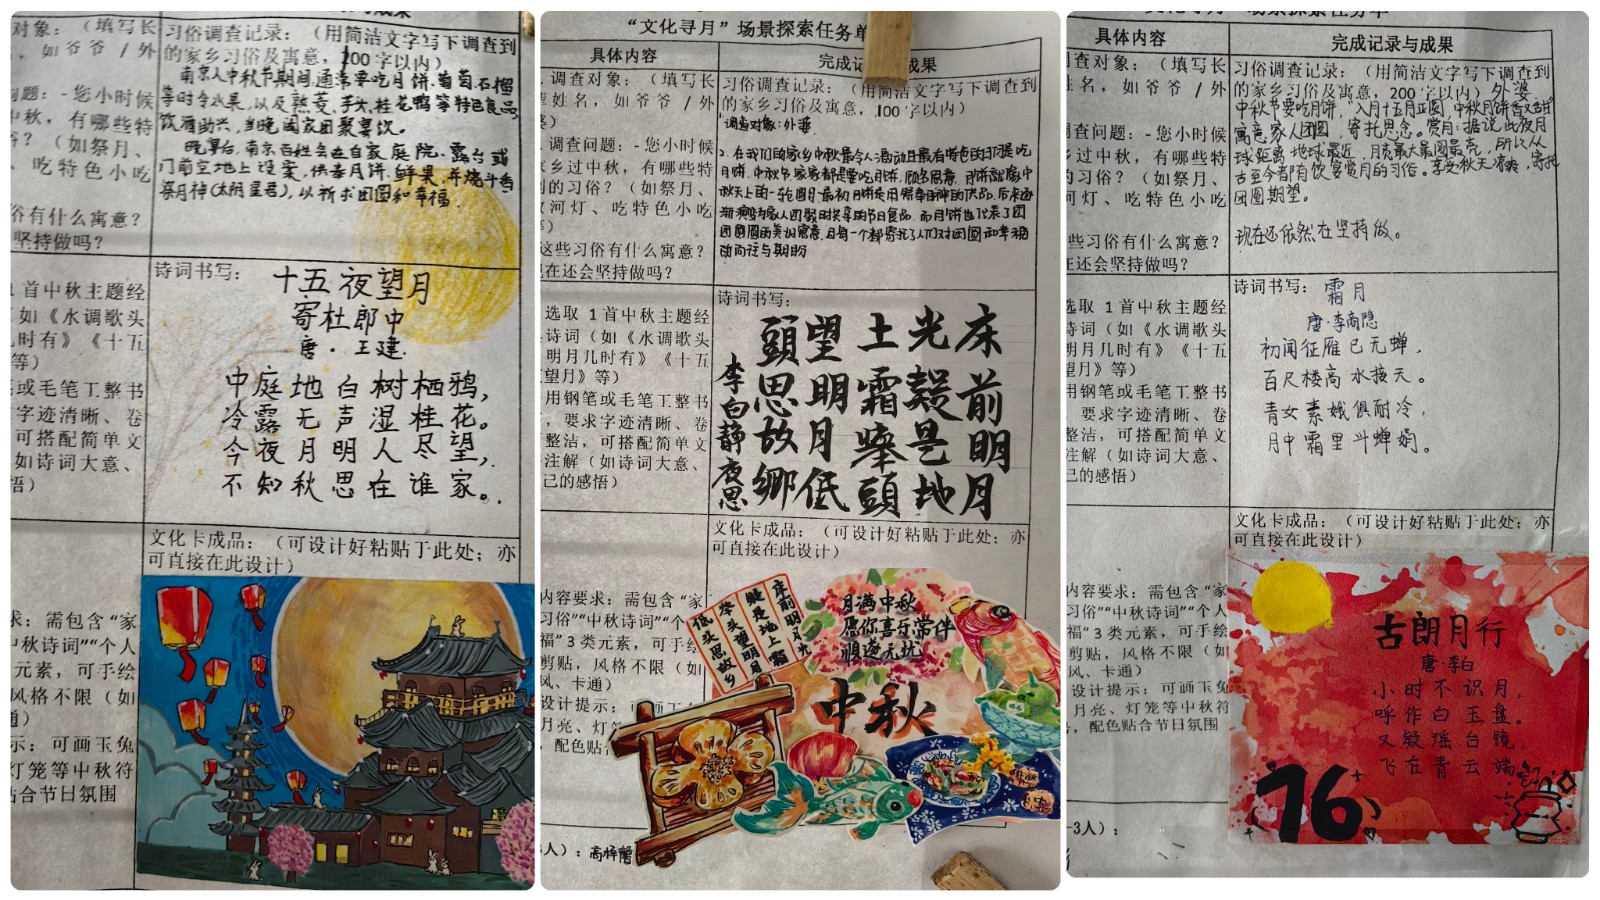 对象：（填写长
，如爷爷 / 外
问题：-您小时候
中秋，有哪些特
俗？（如祭月、
、吃特色小吃
俗有什么寓意？
坚持做吗？
习俗调查记录：（用简洁文字写下调查到
的家乡习俗及寓意，200 字以内）
南京人中秋节期间通常要吃月饼、葡萄、石榴
等时令水果，以及熟菱、芋头、桂花鸭等特色食品，
饮酒助兴，当晚阖家团聚宴饮。
晚宴后，南京百姓会在自家庭院、露台或
门前空地上设案，供奉月饼、鲜果，并烧斗香
祭月神(太阴星君)，以祈求团圆和幸福.
1 首中秋主题经
如《水调歌头
几时有》《十五
等）
或毛笔工整书
字迹清晰、卷
可搭配简单文
如诗词大意、
悟）
诗词书写：
十五夜望月
寄杜郎中
唐·王建
中庭地白树栖鸦，
冷露无声湿桂花。
今夜月明人尽望，
不知秋思在谁家。
求：需包含“家
中秋诗词”“个人
元素，可手绘
风格不限（如
通）
示：可画玉兔
灯笼等中秋符
贴合节日氛围
文化卡成品：（可设计好粘贴于此处；亦
可直接在此设计）
“文化寻月”场景探索任务单
具体内容
完成记
成果
调查对象：（填写长
姓名，如爷爷 / 外
调查问题：-您小时候
乡过中秋，有哪些特
的习俗？（如祭月、
放河灯、吃特色小吃
这些习俗有什么寓意？
现在还会坚持做吗？
习俗调查记录：（用简洁文字写下调查到
的家乡习俗及寓意，100 字以内）
调查对象：外婆
2. 在我们的家乡中秋最令人激动且最有特色的习俗是吃
月饼，中秋乡家家都是要吃月饼，顾名思意，月饼就像中
秋天上的一轮圆月最初月饼是用需奉月神的供品，后来逐
渐演变为家人团聚时共享的节日食品，而月饼也代表了团
团圆圆的美好寓意，且每一个都寄托了人们对团圆和幸福
的向往与期盼
选取 1 首中秋主题经
诗词（如《水调歌头
明月几时有》《十五
望月》等）
用钢笔或毛笔工整书
，要求字迹清晰、卷
整洁，可搭配简单文
注解（如诗词大意、
己的感悟）
诗词书写：
床前明月
光疑是地
上霜舉頭
望明月低
頭思故鄉
李白静夜思
内容要求：需包含“家
习俗”“中秋诗词”“个
福”3 类元素，可手绘
剪贴，风格不限（如
风、卡通）
设计提示：可画玉
月亮、灯笼
，配色贴
文化卡成品：（可设计好粘贴于此处；亦
可直接在此设计）
床前明月光
疑是地上霜
举头望明月
低头思故乡
月满中秋
愿你喜乐常伴
顺遂无忧
中秋
人）：高梓馨
具体内容
完成记录与成果
调查对象：（填写长
姓名，如爷爷 / 外
调查问题：-您小时候
乡过中秋，有哪些特
的习俗？（如祭月、
河灯、吃特色小吃
些习俗有什么寓意？
在还会坚持做吗？
习俗调查记录：（用简洁文字写下调查到
的家乡习俗及寓意，200 字以内）外婆
中秋节要吃月饼，“八月十五月正圆，中秋月饼香又甜”
寓意家人团圆，寄托思念。赏月：据说此夜月
球距离地球最近，月亮最大最圆最亮，所以从
古至今都有饮宴赏月的习俗。享受秋天清爽，寄托
团圆期望。
现在还依然在坚持做。
选取 1 首中秋主题经
诗词（如《水调歌头
明月几时有》《十五
望月》等）
用钢笔或毛笔工整书
，要求字迹清晰、卷
整洁，可搭配简单文
注解（如诗词大意、
己的感悟）
诗词书写：
霜月
唐·李商隐
初闻征雁已无蝉，
百尺楼高水接天。
青女素娥俱耐冷，
月中霜里斗蝉娟。
内容要求：需包含“家
习俗”“中秋诗词”“个人
福”3 类元素，可手绘
剪贴，风格不限（如
风、卡通）
设计提示：可画玉兔
月亮、灯笼等中秋符
，配色贴合节日氛围
文化卡成品：（可设计好粘贴于此处；亦
可直接在此设计）
古朗月行
唐·李白
小时不识月，
呼作白玉盘。
又疑瑶台镜，
飞在青云端
76
-3人）：